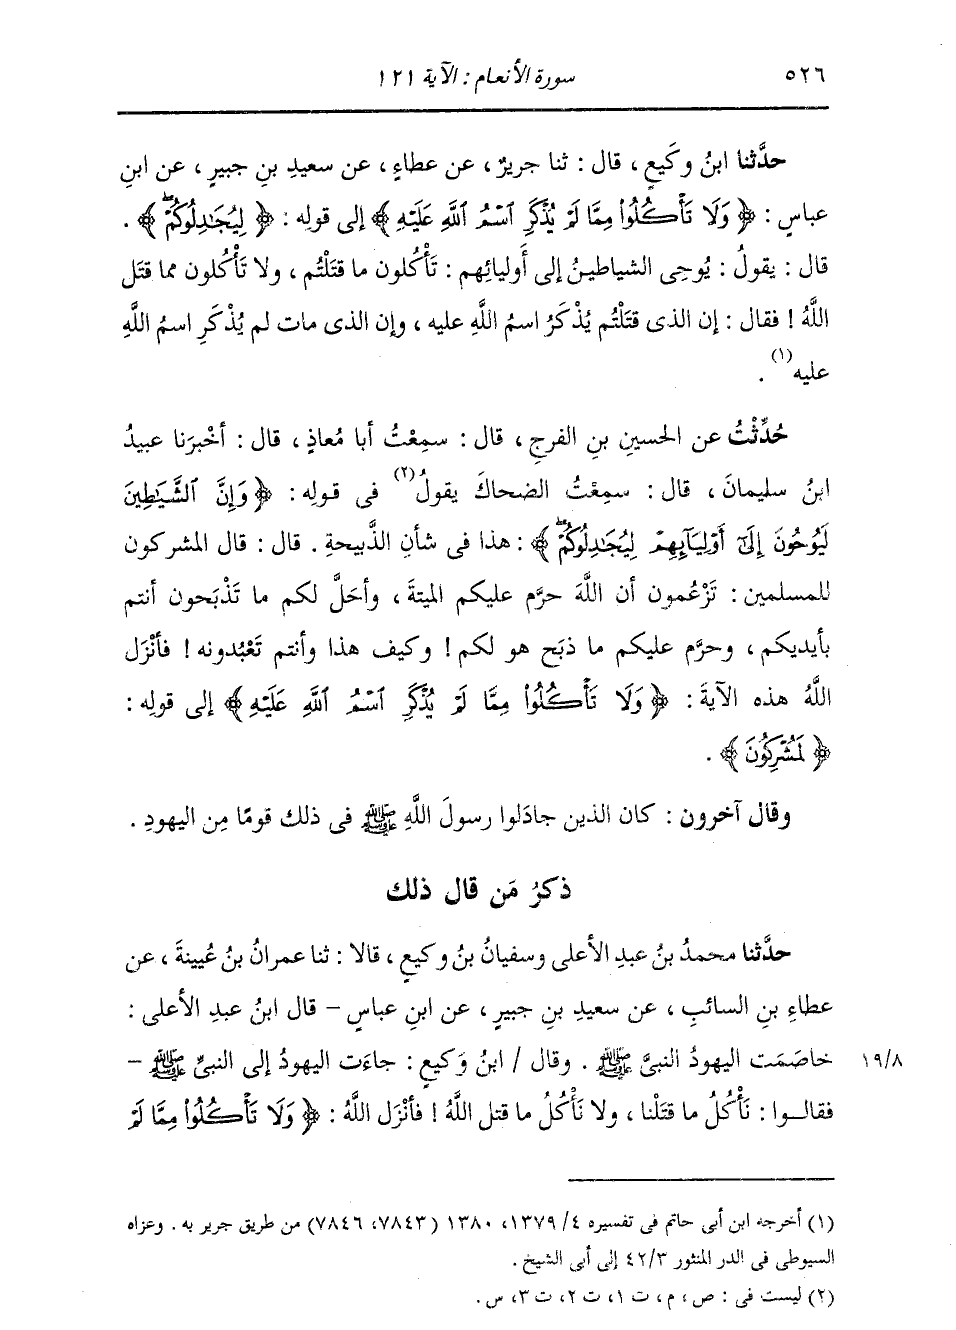 ٥٢٦ سورة الأنعام : الآية ١٢١
حدَّثنا ابنُ وكيعٍ ، قال : ثنا جريرٌ ، عن عطاءٍ ، عن سعيدِ بنِ جبيرٍ ، عن ابنِ
عباسٍ : ﴿ وَلَا تَأْكُلُوا۟ مِمَّا لَمْ يُذْكَرِ ٱسْمُ ٱللَّهِ عَلَيْهِ ﴾ إلى قوله : ﴿ لِيُجَٰدِلُوكُمْ ۖ ﴾ .
قال : يقولُ : يُوحِى الشياطينُ إلى أوليائِهم : تَأْكلون ما قتَلْتُم ، ولا تَأْكلون مما قتَل
اللَّهُ ! فقال : إن الذى قتَلْتُم يُذْكَرُ اسمُ اللَّهِ عليه ، وإن الذى مات لم يُذْكَرِ اسمُ اللَّهِ
عليه (١) .
حُدِّثْتُ عن الحسينِ بنِ الفرجِ ، قال : سمِعْتُ أبا مُعاذٍ ، قال : أخْبرَنا عبيدُ
ابنُ سليمانَ ، قال : سمِعْتُ الضحاكَ يقولُ (٢) فى قولِه : ﴿ وَإِنَّ ٱلشَّيَٰطِينَ
لَيُوحُونَ إِلَىٰٓ أَوْلِيَآئِهِمْ لِيُجَٰدِلُوكُمْ ۖ ﴾ : هذا فى شأنِ الذَّبيحةِ . قال : قال المشركون
للمسلمين : تَزْعُمون أن اللَّهَ حرَّم عليكم الميتةَ ، وأحَلَّ لكم ما تَذْبَحون أنتم
بأيديكم ، وحرَّم عليكم ما ذبَح هو لكم ! وكيف هذا وأنتم تَعْبُدونه ! فأنْزَل
اللَّهُ هذه الآيةَ : ﴿ وَلَا تَأْكُلُوا۟ مِمَّا لَمْ يُذْكَرِ ٱسْمُ ٱللَّهِ عَلَيْهِ ﴾ إلى قولِه :
﴿ لَمُشْرِكُونَ ﴾ .
وقال آخرون : كان الذين جادَلوا رسولَ اللَّهِ ﷺ فى ذلك قومًا مِن اليهودِ .
ذكرُ مَن قال ذلك
حدَّثنا محمدُ بنُ عبدِ الأعلى وسفيانُ بنُ وكيعٍ ، قالا : ثنا عمرانُ بنُ عُيينةَ ، عن
عطاءِ بنِ السائبِ ، عن سعيدِ بنِ جبيرٍ ، عن ابنِ عباسٍ – قال ابنُ عبدِ الأعلى :
خاصَمَت اليهودُ النبىَّ ﷺ . وقال / ابنُ وَكيعٍ : جاءَت اليهودُ إلى النبىِّ ﷺ – ١٩/٨
فقالـوا : نَأْكُلُ ما قتَلْنا ، ولا نَأْكُلُ ما قتل اللَّهُ ! فأنْزَل اللَّهُ : ﴿ وَلَا تَأْكُلُوا۟ مِمَّا لَمْ
(١) أخرجه ابن أبى حاتم فى تفسيره ٤/ ١٣٧٩، ١٣٨٠ (٧٨٤٣، ٧٨٤٦) من طريق جرير به . وعزاه
السيوطى فى الدر المنثور ٤٢/٣ إلى أبى الشيخ .
(٢) ليست فى : ص ، م ، ت ١، ت ٢، ت ٣، س .